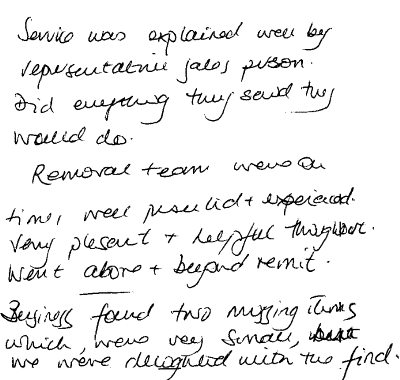 Service was explained well by
representative sales person.
Did everything they said they
would do.
Removal team were on
time, well presented + experienced.
Very plesent + helpful throughout.
Went above + beyond remit.
Business found two missing items
which, were very small,
we were delighted with the find.